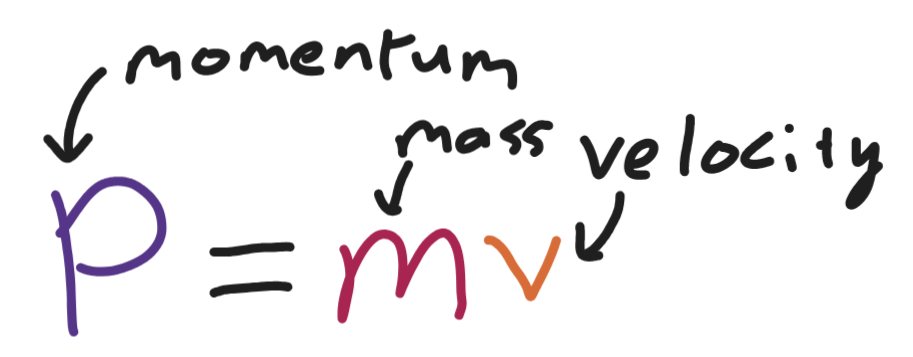 momentum
mass velocity
p = mv